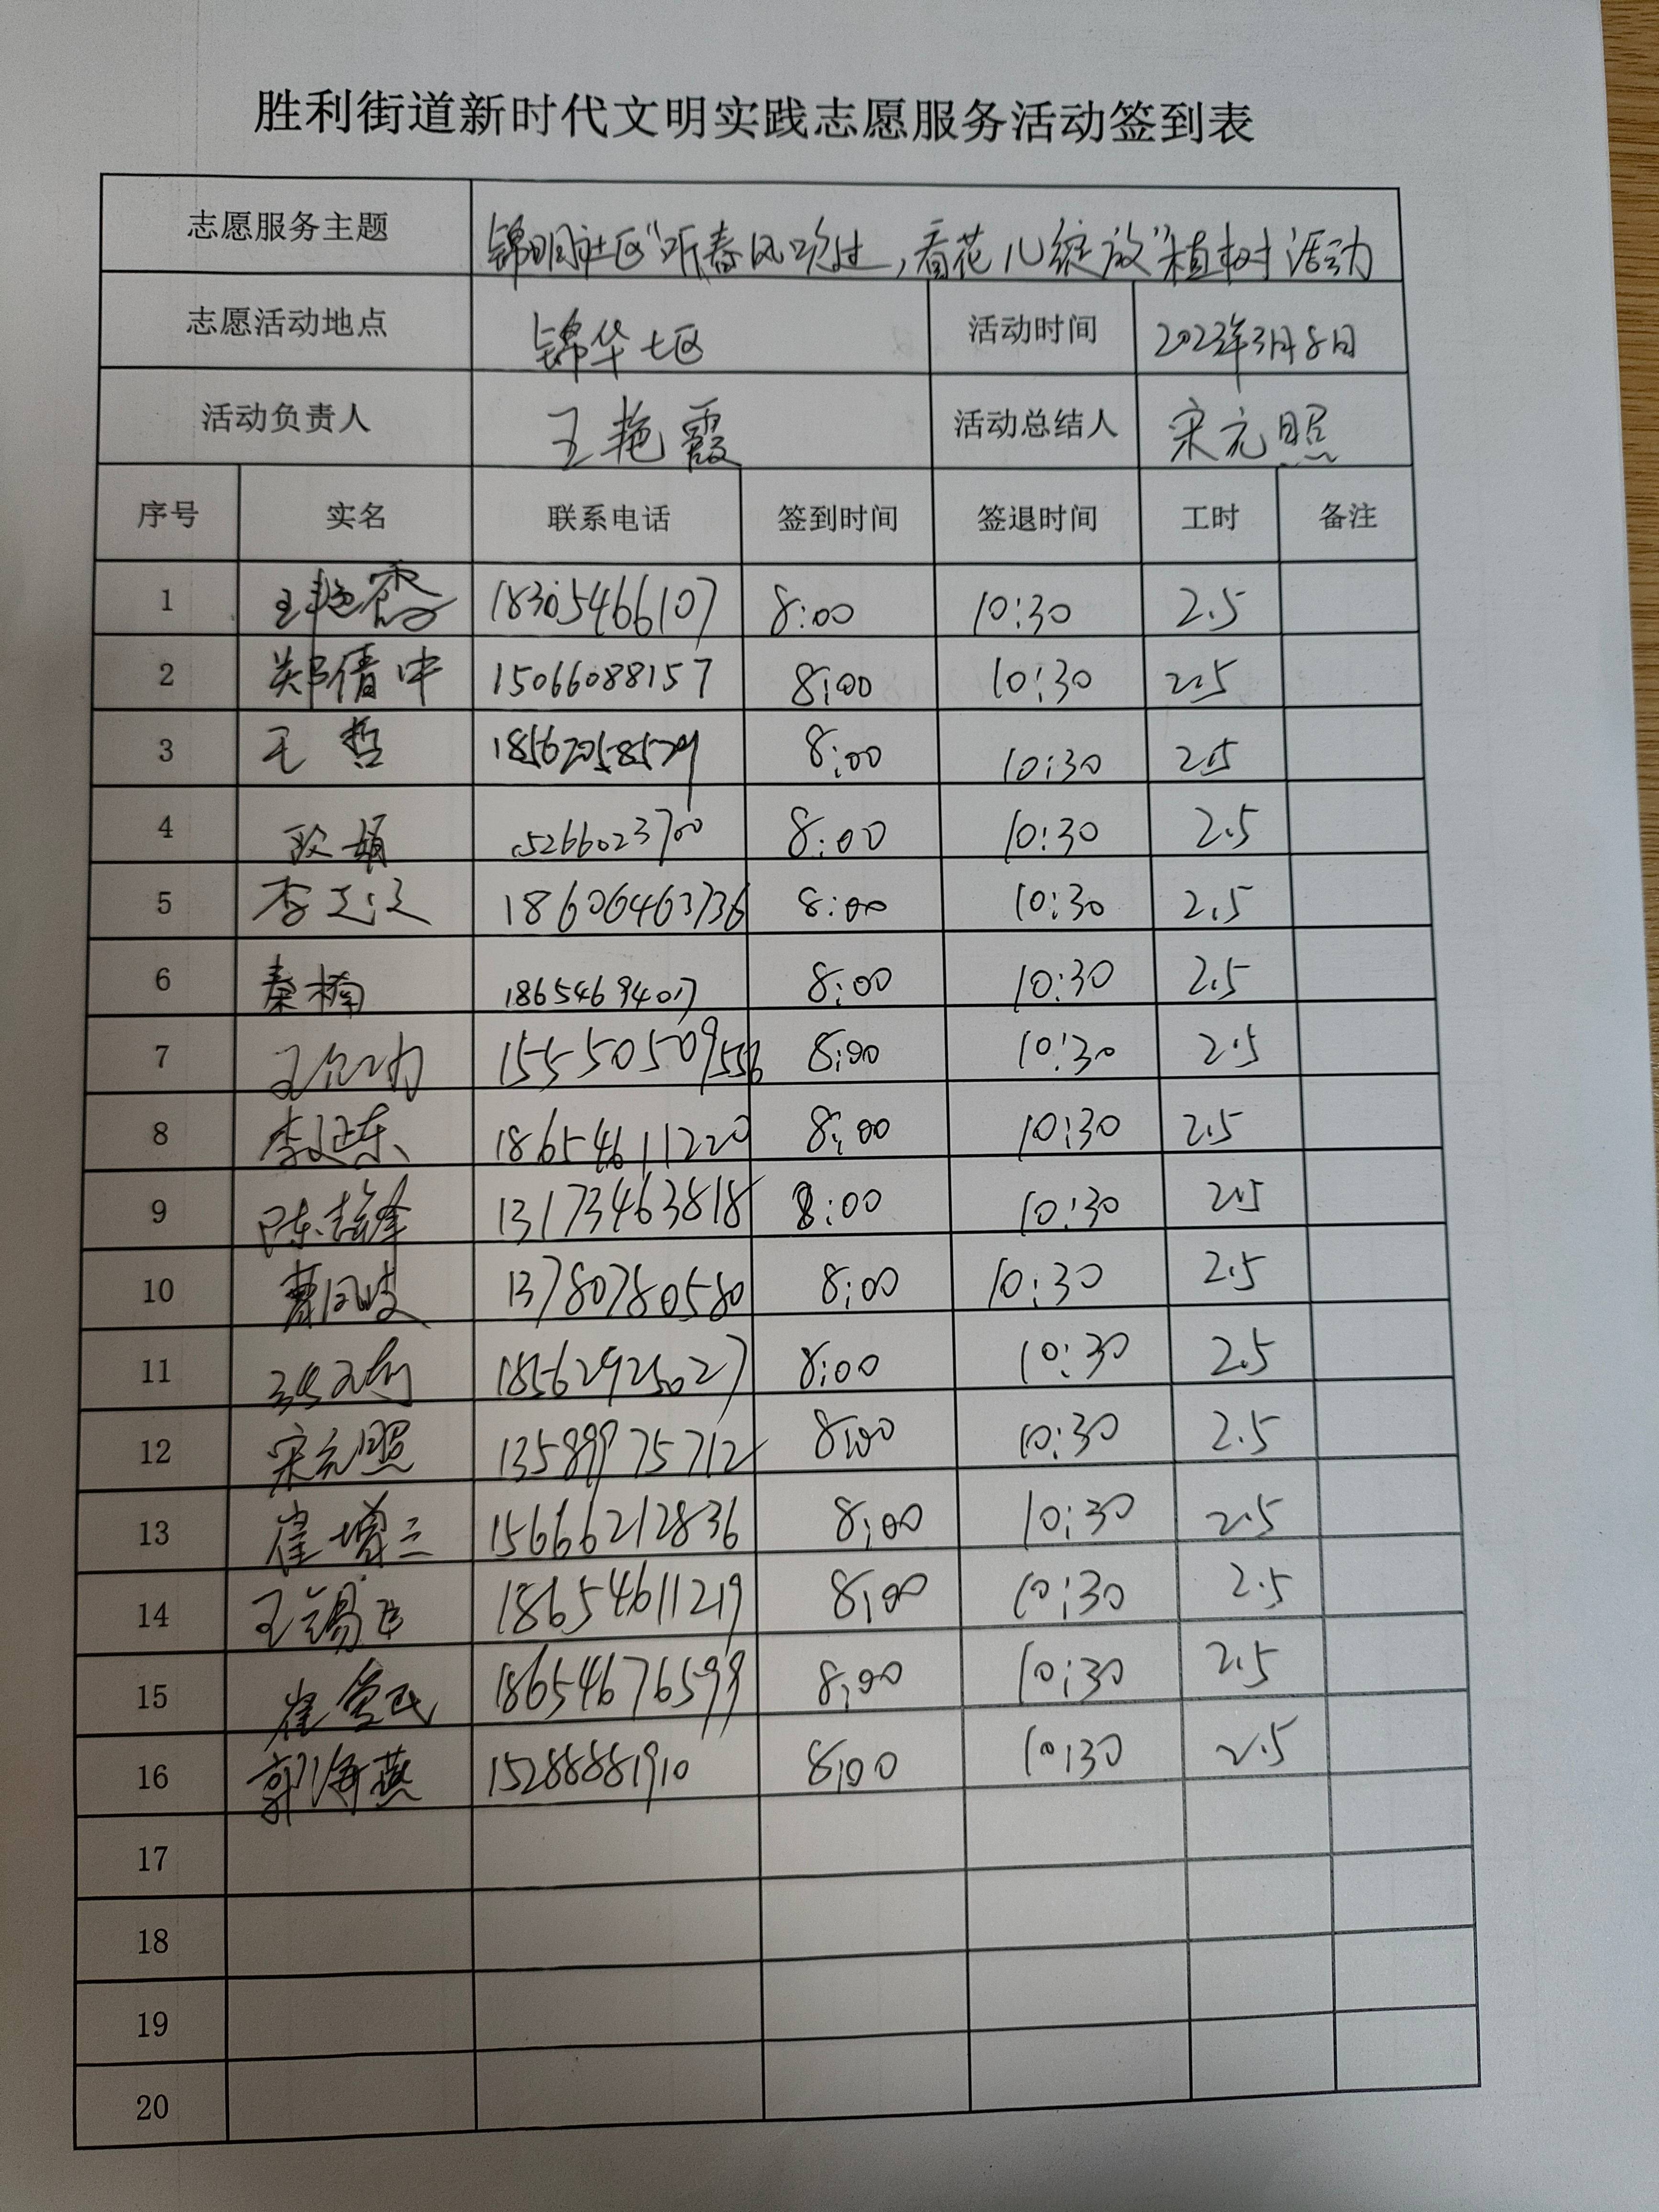 胜利街道新时代文明实践志愿服务活动签到表
志愿服务主题 锦明社区"听春风吹过,看花儿绽放"植树活动
志愿活动地点 锦华七区 活动时间 2023年3月8日
活动负责人 王艳霞 活动总结人 宋元照
序号 实名 联系电话 签到时间 签退时间 工时 备注
1 王艳霞 18305466107 8:00 10:30 2.5
2 郑倩中 15066088157 8:00 10:30 2.5
3 王哲 8:00 10:30 2.5
4 15266023700 8:00 10:30 2.5
5 李 18606463736 8:00 10:30 2.5
6 秦楠 18654694017 8:00 10:30 2.5
7 王 15550509556 8:00 10:30 2.5
8 李延东 18654611220 8:00 10:30 2.5
9 陈 锋 13173463818 8:00 10:30 2.5
10 曹 13780780580 8:00 10:30 2.5
11 18562925027 8:00 10:30 2.5
12 宋元照 13589975712 8:00 10:30 2.5
13 崔增三 15666212836 8:00 10:30 2.5
14 王锡 18654611219 8:00 10:30 2.5
15 崔 民 18654676599 8:00 10:30 2.5
16 郭海燕 15288881910 8:00 10:30 2.5
17
18
19
20